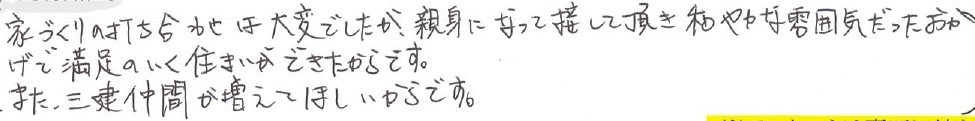 家づくりの打ち合わせは大変でしたが、親身になって接して頂き和やかな雰囲気だったおか
げで満足のいく住まいができたからです。
また、三建仲間が増えてほしいからです。